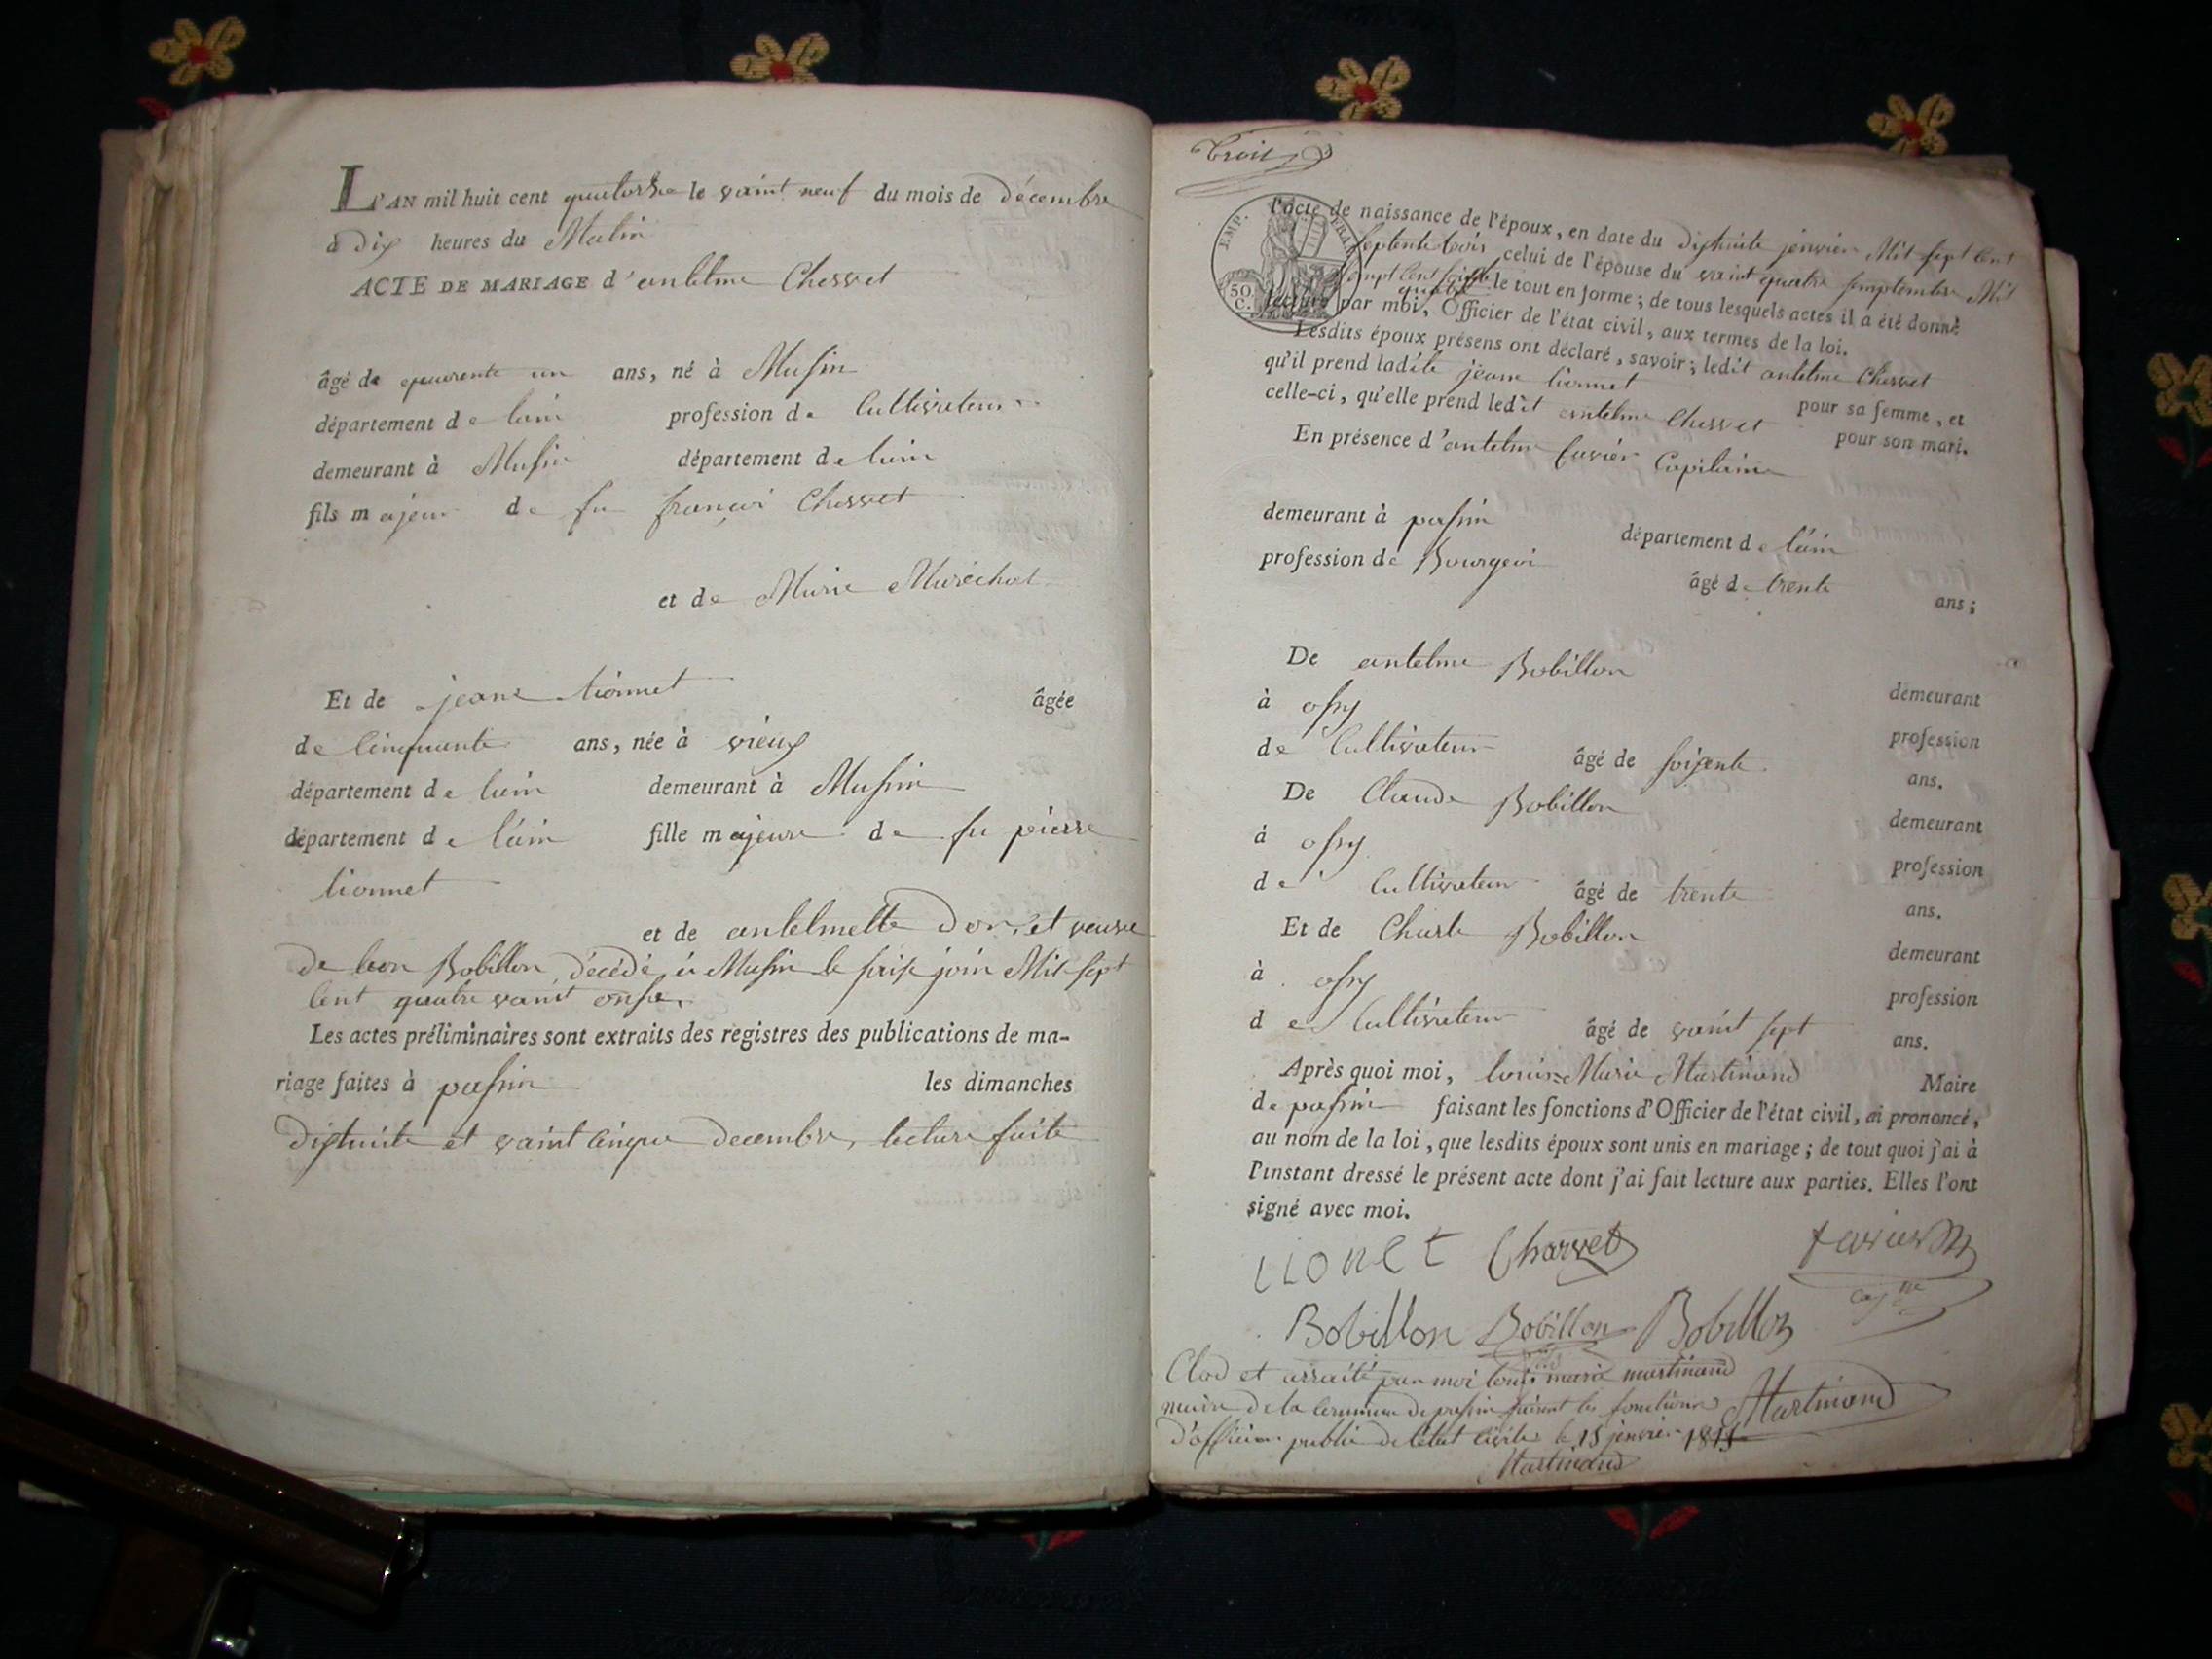 L'AN mil huit cent quatorse le vaint neuf du mois de décembre
à dix heures du Matin
ACTE DE MARIAGE d'antelme Chervet
âgé de quarente un ans, né à Musin
département de lain profession de Cultivateur
demeurant à Musin département de lain
fils majeur de fu françoi Chervet
et de Marie Maréchal
Et de jeane lionnet âgée
de Cinquante ans, née à vieux
département de lain demeurant à Musin
département de l'ain fille majeure de fu pierre
lionnet
et de antelmette Dorvet veuve
de leon Bobillon décédé à Musin le saise join Mil sept
Cent quatre vaint onse.
Les actes préliminaires sont extraits des registres des publications de ma-
riage faites à passin les dimanches
dixhuite et vaint cinque decembre, lecture faite
troit
EMP. FRAN
50 C.
l'acte de naissance de l'époux, en date du dixhuite jenvier Mil sept Cent
septente trois celui de l'épouse du vaint quatre semptembre Mil
sempt Cent soisente
quatre le tout en forme; de tous lesquels actes il a été donné
lecture par moi, Officier de l'état civil, aux termes de la loi.
Lesdits époux présens ont déclaré, savoir; ledit antelme Chervet
qu'il prend ladite jeane lionnet pour sa femme, et
celle-ci, qu'elle prend ledit antelme Chervet pour son mari.
En présence d'antelme favier Capitaine
demeurant à passin département de l'ain
profession de Bourgeoi âgé de trente ans;
De antelme Bobillon demeurant
à ossy profession
de Cultivateur âgé de soisente ans.
De Claude Bobillon demeurant
à ossy profession
de Cultivateur âgé de trente ans.
Et de Charle Bobillon demeurant
à ossy profession
de Cultivateur âgé de vaint sept ans.
Après quoi moi, louis Marie Martinand Maire
de passin faisant les fonctions d'Officier de l'état civil, ai prononcé,
au nom de la loi, que lesdits époux sont unis en mariage; de tout quoi j'ai à
l'instant dressé le présent acte dont j'ai fait lecture aux parties. Elles l'ont
signé avec moi.
lionet Charvet favier
cap ne
Bobillon Bobillon Bobillon
Clod et arraité par moi louis marie martinand
maire de la Commune de passin faisent les fonctions Martinand
d'officier public de l'état civile le 15 jenvier 1815
Martinand